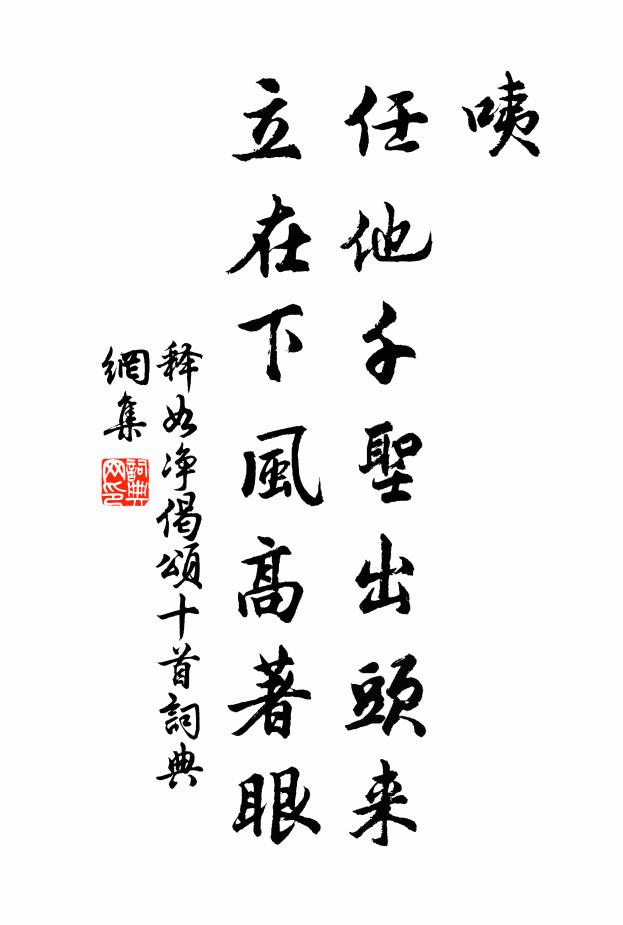 咦
任他千聖出頭来
立在下風高著眼
释如净偈頌十首詞典
網集
詞典网印